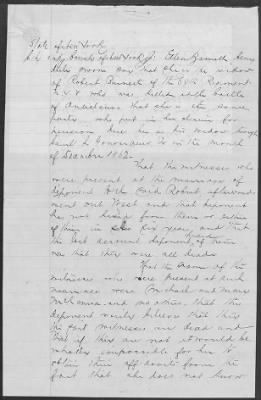 State of New York
City and County of New York SS. Ellen
duly sworn says that she is widow
of Robert of the Regiment
N.Y.V. who was killed at the battle
of Antietam that she is the same
party who put in her claim for
pension due her as his widow through
in the month
of December 1862.
That the witnesses who
were present at the marriage of
deponent with said Robert afterwards
went out West and that deponent
has not heard from them or either
of them in six years and that
the last account deponent of them
was that they were all dead.
That the names of the
witnesses who were present at such
marriage were Michael and Mary
McKenna and no others, that the
deponent verily believes that
the said witnesses are dead and
that if they are not it would be
utterly impossible for her to
obtain their affidavits from the
fact that she does not know